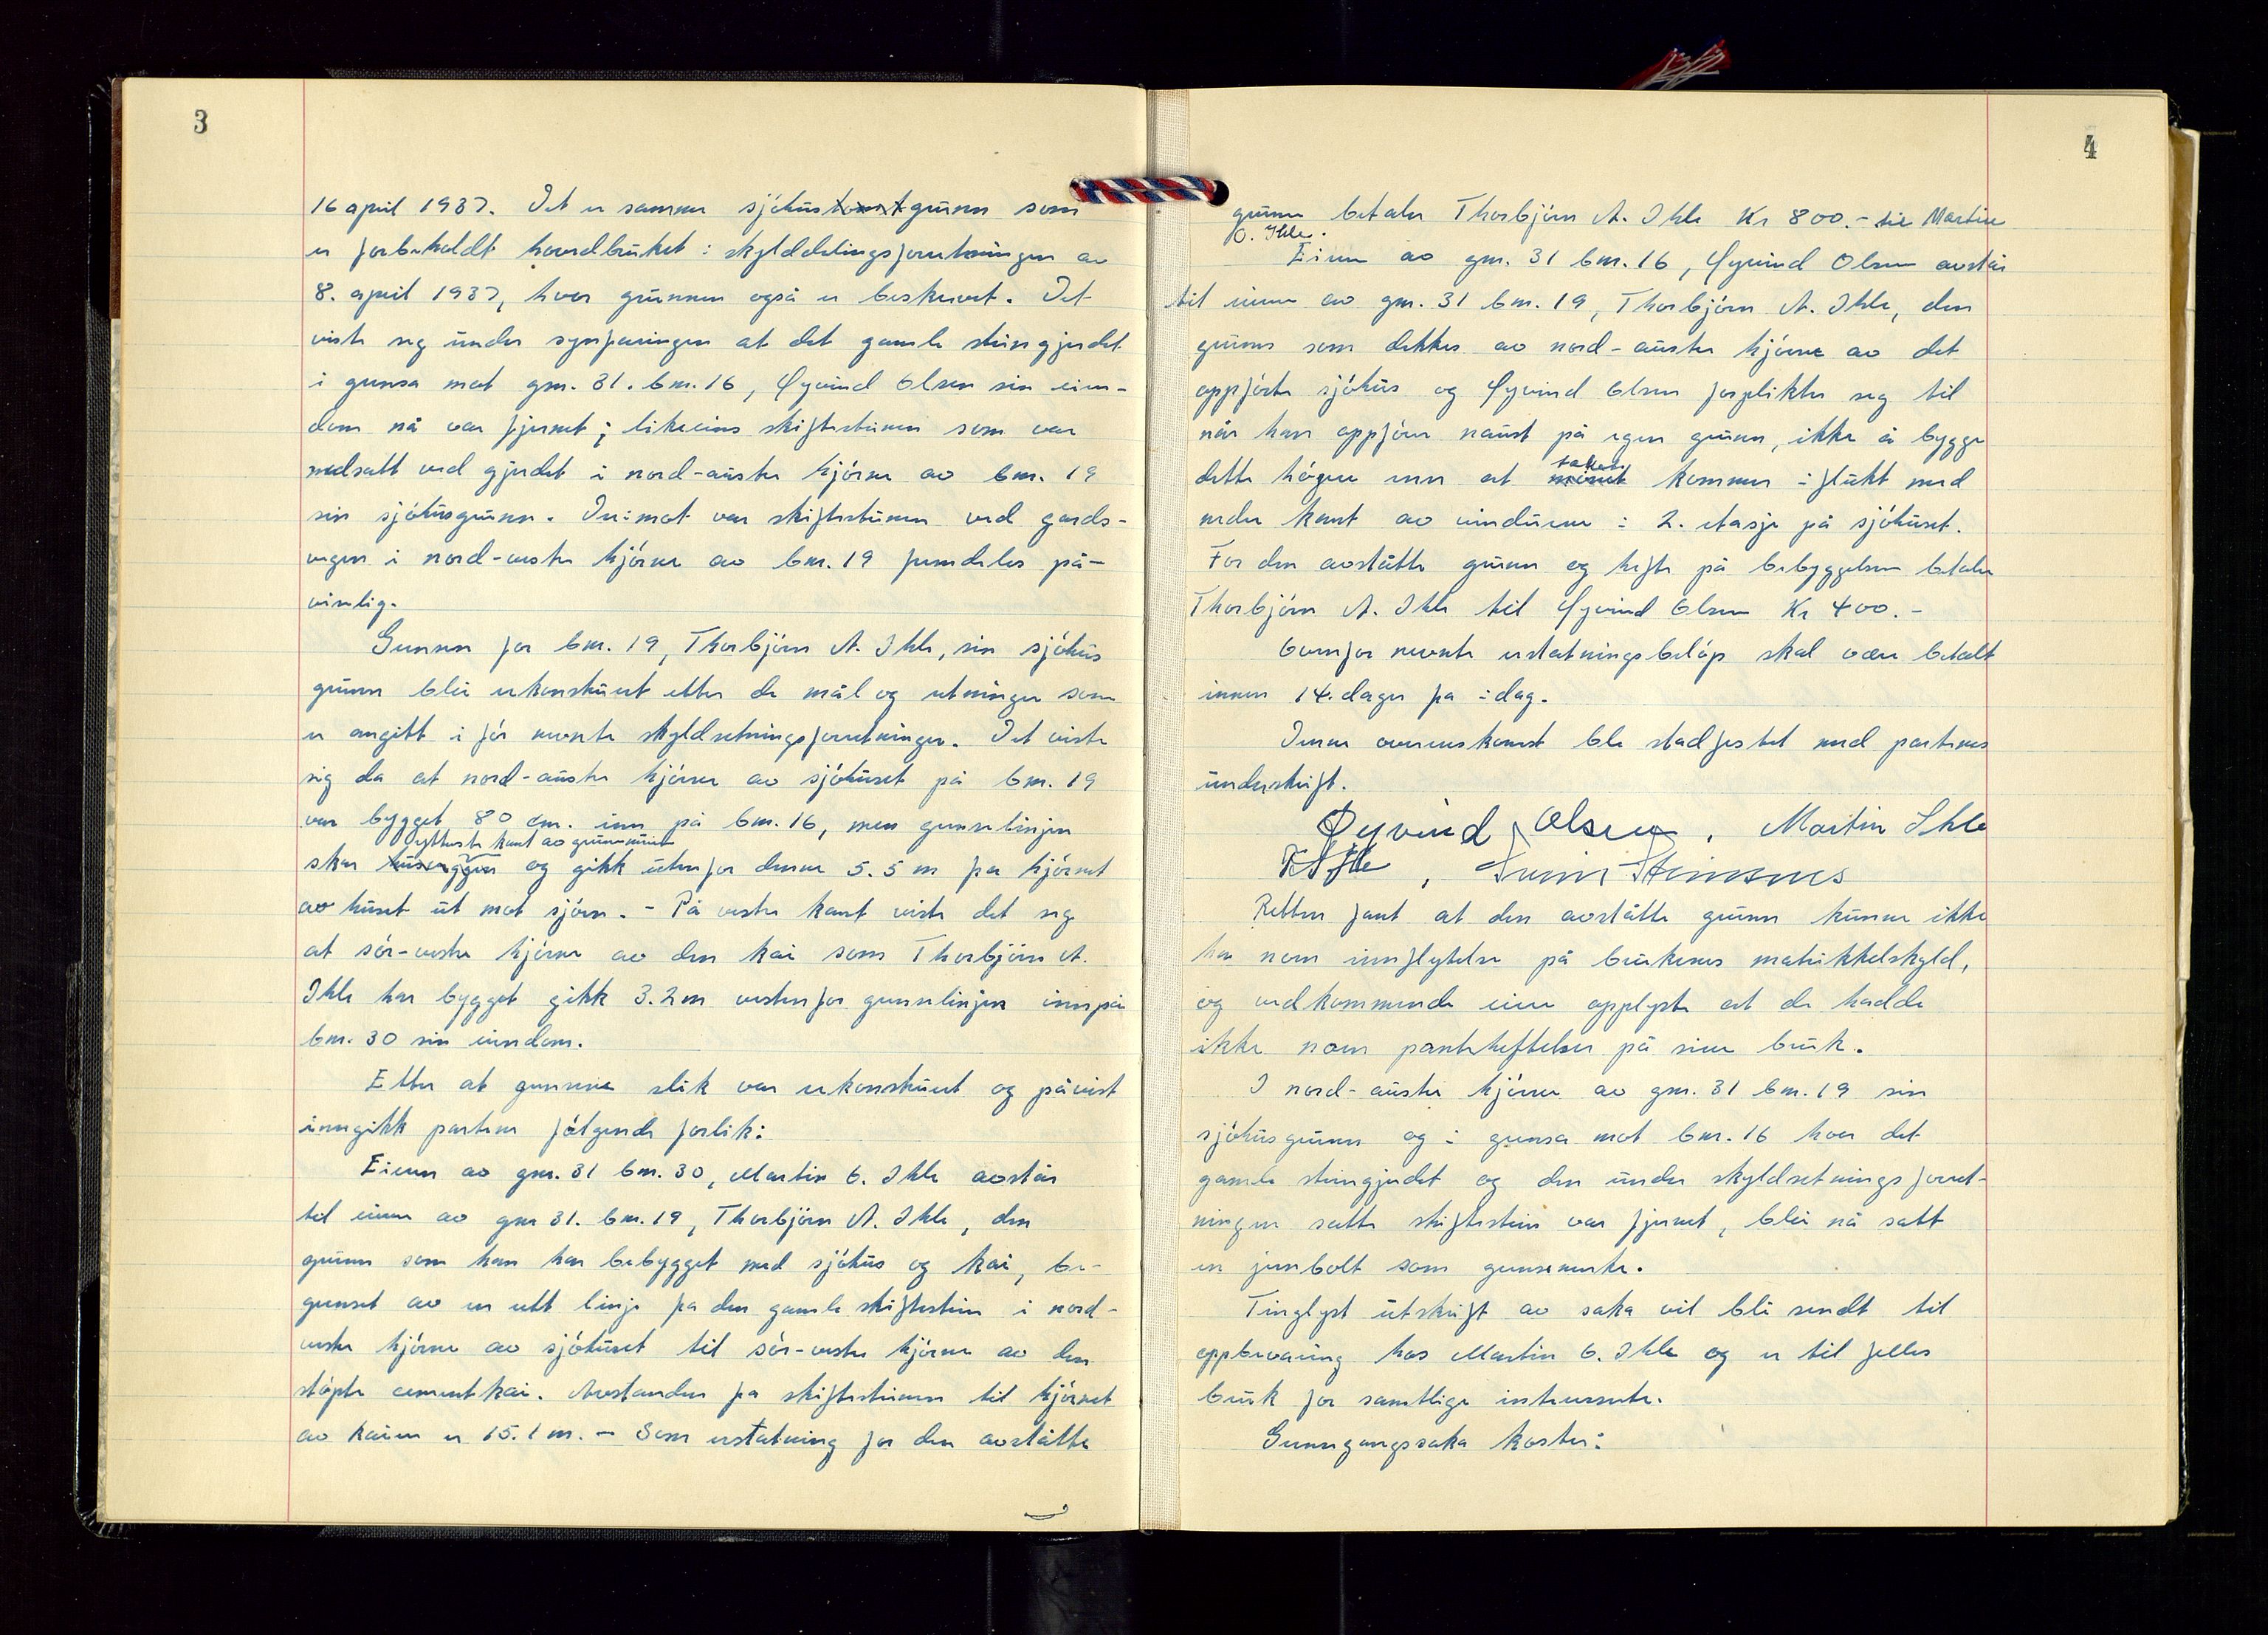 3
16 april 1937. Det er samme sjøhustomtgrunn som
er forbeholdt hovedbruket i skylddelingsforretningen av
8. april 1937, hvor grunnen også er beskrevet. Det
viste seg under synfaringen at det gamle steingjerdet
i grensa mot gnr. 31. bnr. 16, Øyvind Olsen sin eien-
dom nå var fjernet; likeeins skiftesteinen som var
nedsatt ved gjerdet i nord-austre hjørne av bnr. 19
sin sjøhusgrunn. Derimot var skiftesteinen ved gards-
vegen i nord-vestre hjørne av bnr. 19 fremdeles på-
viselig.
Grensen for bnr. 19, Thorbjørn A. Ihle, sin sjøhus
grunn blei rekonstruert etter de mål og retninger som
er angitt i før nevnte skyldsetningsforretninger. Det viste
sig da at nord-austre hjørne av sjøhuset på bnr. 19
var bygget 80 cm. inn på bnr. 16, men grenselinjen
ytterste kant av grunnmuren
skar husveggen og gikk utenfor denne 5.5 m fra hjørnet
av huset ut mot sjøen. - På vestre kant viste det seg
at sør-vestre hjørne av den kai som Thorbjørn A.
Ihle har bygget gikk 3.2 m vestenfor grenselinjen innpå
bnr. 30 sin eiendom.
Etter at grensene slik var rekonstruert og påvist
inngikk partene følgende forlik:
Eieren av gnr. 31 bnr. 30, Martin O. Ihle avstår
til eieren av gnr 31. bnr. 19, Thorbjørn A. Ihle, den
grunn som han har bebygget med sjøhus og kai, be-
grenset av en rett linje fra den gamle skiftestein i nord-
vestre hjørne av sjøhuset til sør-vestre hjørne av den
støpte cementkai. Avstanden fra skiftesteinen til hjørnet
av kaien er 15.1 m. - Som erstatning for den avståtte
4
grunn betaler Thorbjørn A. Ihle Kr 800.- til Martin
O. Ihle.
Eieren av gnr. 31 bnr. 16, Øyvind Olsen avstår
til eieren av gnr. 31 bnr. 19, Thorbjørn A. Ihle, den
grunn som dekkes av nord-austre hjørne av det
oppførte sjøhus og Øyvind Olsen forplikter seg til
når han oppfører naust på egen grunn, ikke å bygge
taket
dette høgere enn at mønet kommer i flukt med
nedre kant av vinduene i 2. etasje på sjøhuset.
For den avståtte grunn og hefte på bebyggelsen betaler
Thorbjørn A. Ihle til Øyvind Olsen Kr 400.-
Ovenfor nevnte erstatningsbeløp skal være betalt
innen 14. dager fra idag.
Denne overenskomst ble stadfestet med partenes
underskrift.
Øyvind Olsen. Martin Ihle
Retten fant at den avståtte grunn kunne ikke
ha noen innflytelse på brukenes matrikkelskyld,
og vedkommende eiere opplyste at de hadde
ikke noen panteheftelser på sine bruk.
I nord-austre hjørne av gnr. 31 bnr. 19 sin
sjøhusgrunn og i grensa mot bnr. 16 hvor det
gamle steingjerdet og den under skyldsetningsforret-
ningen satte skiftestein var fjernet, blei nå satt
en jernbolt som grensemerke.
Tinglyst utskrift av saka vil bli sendt til
oppbevaring hos Martin O. Ihle og er til felles
bruk for samtlige interesserte.
Grenngangssaka koster: